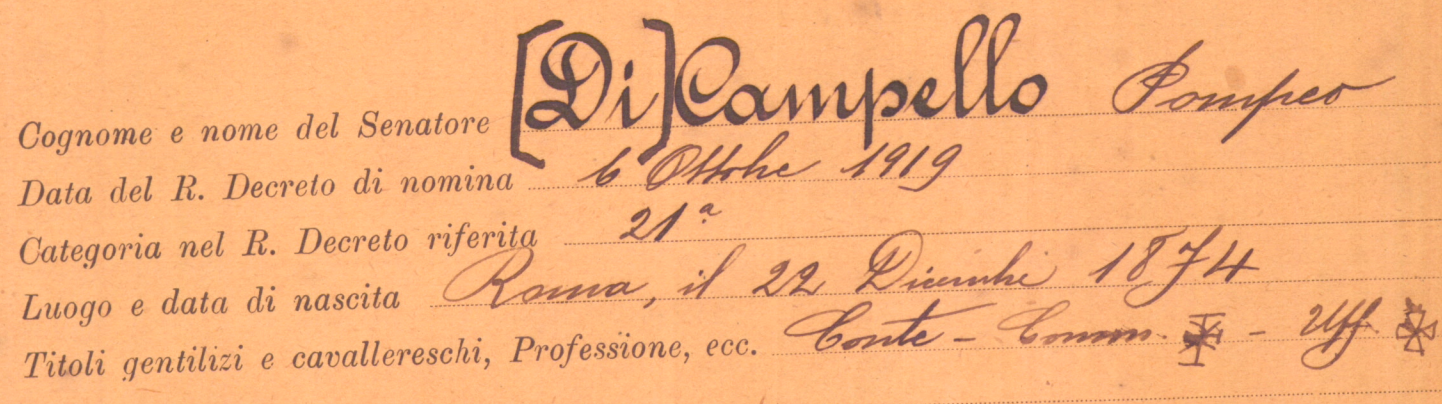 Cognome e nome del Senatore [Di] Campello Pompeo
Data del R. Decreto di nomina 6 Ottobre 1919
Categoria nel R. Decreto riferita 21ª
Luogo e data di nascita Roma, il 22 Dicembre 1874
Titoli gentilizi e cavallereschi, Professione, ecc. Conte - Comm. - Uff.